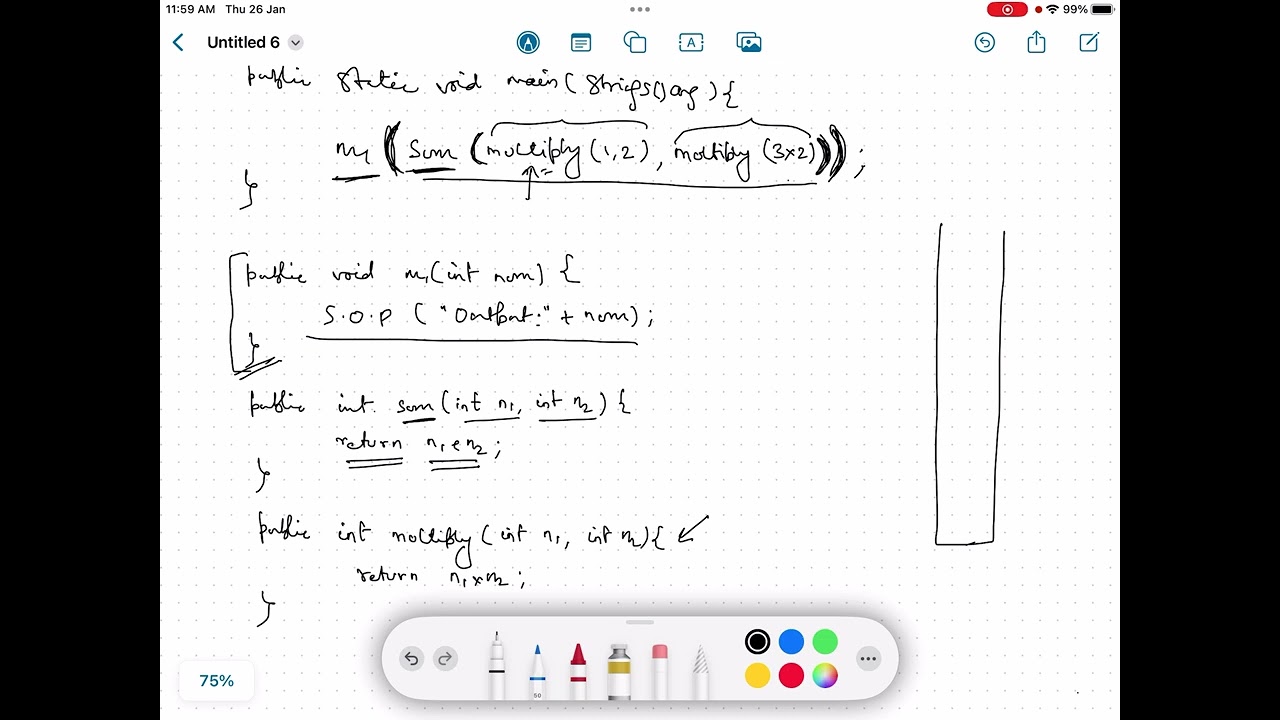 11:59 AM Thu 26 Jan
99%
Untitled 6
A
public static void main( Strings() arg ) {
m1 ((Sum (multiply (1,2) , multiply (3x2)))) ;
}
public void m1(int num) {
S.O.P ( "Output:" + num) ;
}
public int. sum (int n1, int n2) {
return n1 + n2 ;
}
public int multiply ( int n1, int n2) {
return n1 x n2 ;
}
50
75%